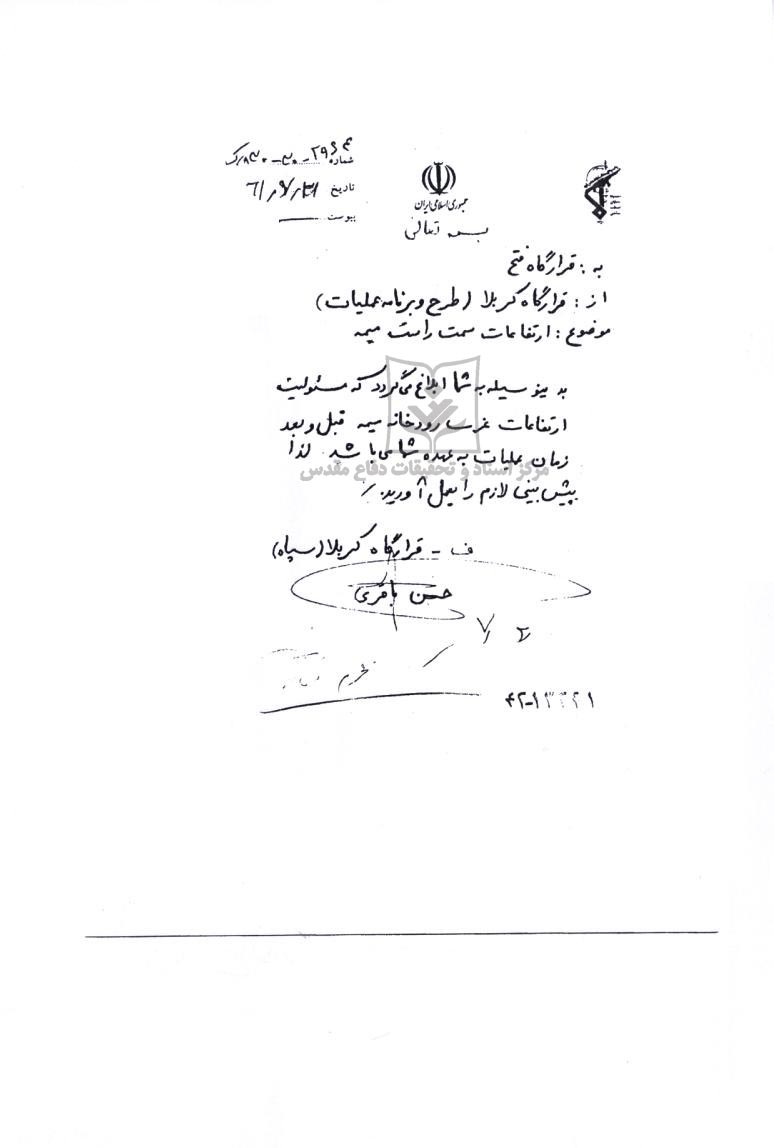 شماره
تاریخ
پیوست
جمهوری اسلامی ایران
بسمه تعالی
به : قرارگاه فتح
از : قرارگاه کربلا (طرح و برنامه عملیات)
موضوع : ارتفاعات سمت راست میمه
بدینوسیله به شما ابلاغ می‌گردد که مسئولیت
ارتفاعات غرب رودخانه میمه قبل و بعد
زمان عملیات به عهده شما می‌باشد لذا
پیش بینی لازم را بعمل آورید.
مرکز اسناد و تحقیقات دفاع مقدس
ف - قرارگاه کربلا (سپاه)
حسن باقری